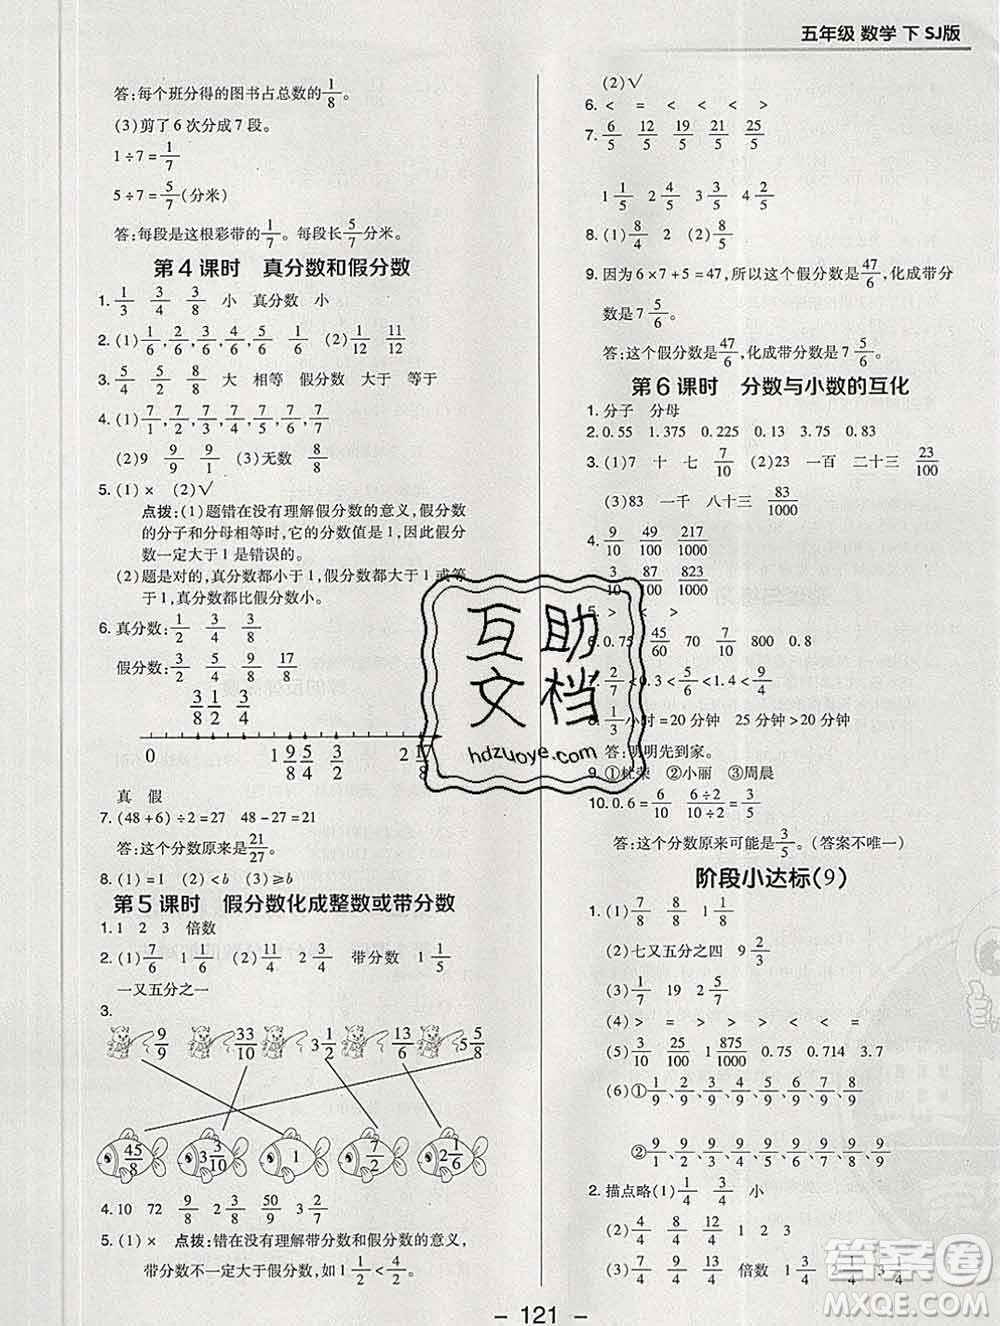 五年级 数学 下 SJ版
答：每个班分得的图书占总数的1/8。
(3)剪了6次分成7段。
1÷7=1/7
5÷7=5/7(分米)
答：每段是这根彩带的1/7。每段长5/7分米。
第4课时 真分数和假分数
1. 1/3 3/4 3/8 小 真分数 小
2. (1)1/6,2/6,3/6,4/6,5/6 1/6 (2)1/12 11/12
3. 5/4 5/2 8/8 大 相等 假分数 大于 等于
4. (1)7/1,7/2,7/3,7/4,7/5,7/6,7/7
(2)9 9/9 9/8 (3)无数 8/8
5. (1)× (2)√
点拨：(1)题错在没有理解假分数的意义，假分数
的分子和分母相等时，它的分数值是1，因此假分
数一定大于1是错误的。
(2)题是对的，真分数都小于1，假分数大于1或等
于1，真分数都比假分数小。
6. 真分数：1/2 3/4 3/8
假分数：3/2 5/4 9/8 17/8
3/8 1/2 3/4
0 1 9/8 5/4 3/2 2 17/8
真 假
7. (48+6)÷2=27 48-27=21
答：这个分数原来是21/27。
8. (1)=1 (2)<b (3)≥b
第5课时 假分数化成整数或带分数
1. 1 2 3 倍数
2. (1)7/6 1 1/6 (2)11/4 2 3/4 带分数 1 1/5
一又五分之一
3.
9/9 33/10 3 1/2 13/6 5 5/8
45/8 3 3/10 1 7/2 2 1/6
4. 10 72 9/2 3/8 50/9 3/2
5. (1)× 点拨：错在没有理解带分数和假分数的意义，
带分数不一定大于假分数，如1 1/2<4/2。
(2)√
6. < = < < < >
7. 6/5 12/5 19/5 21/5 25/5
1 1/5 2 2/5 3 4/5 4 1/5 5
8. (1)8/4 2 (2)4/4
9. 因为6×7+5=47，所以这个假分数是47/6，化成带分
数是7 5/6。
答：这个假分数是47/6，化成带分数是7 5/6。
第6课时 分数与小数的互化
1. 分子 分母
2. 0.55 1.375 0.225 0.13 3.75 0.83
3. (1)7 十 七 7/10 (2)23 一百 二十三 23/100
(3)83 一千 八十三 83/1000
4. 9/10 49/100 217/1000
3/10 87/100 823/1000
5. > < >
6. 0.75 45/60 70 7/10 800 0.8
7. 2/7<0.3<5/6<1.4<9/6
8. 1/3小时=20分钟 25分钟>20分钟
答：明明先到家。
9. ①杜荣 ②小丽 ③周晨
10. 0.6=6/10 6÷2/10÷2=3/5
答：这个分数原来可能是3/5。(答案不唯一)
阶段小达标(9)
1. (1)7/8 8/8 1 1/8
(2)七又五分之四 9 2/3
(3)1/9 19 2 1/9
(4)> = > > > < =
(5)3/10 24/100 1 875/1000 0.75 0.714 3.7
(6)①1/9、2/9、3/9、4/9、5/9、6/9、7/9、8/9
②9/9、9/8、9/7、9/6、9/5、9/4、9/3、9/2、9/1
2. 描点略(1)1/4 3/4 小
(2)4/4 8/4 12/4 1 2 3
(3)5/4 6/4 倍数 1 1/4 1 2/4
互助
文档
hdzuoye.com
答案圈
MXQE.COM
- 121 -